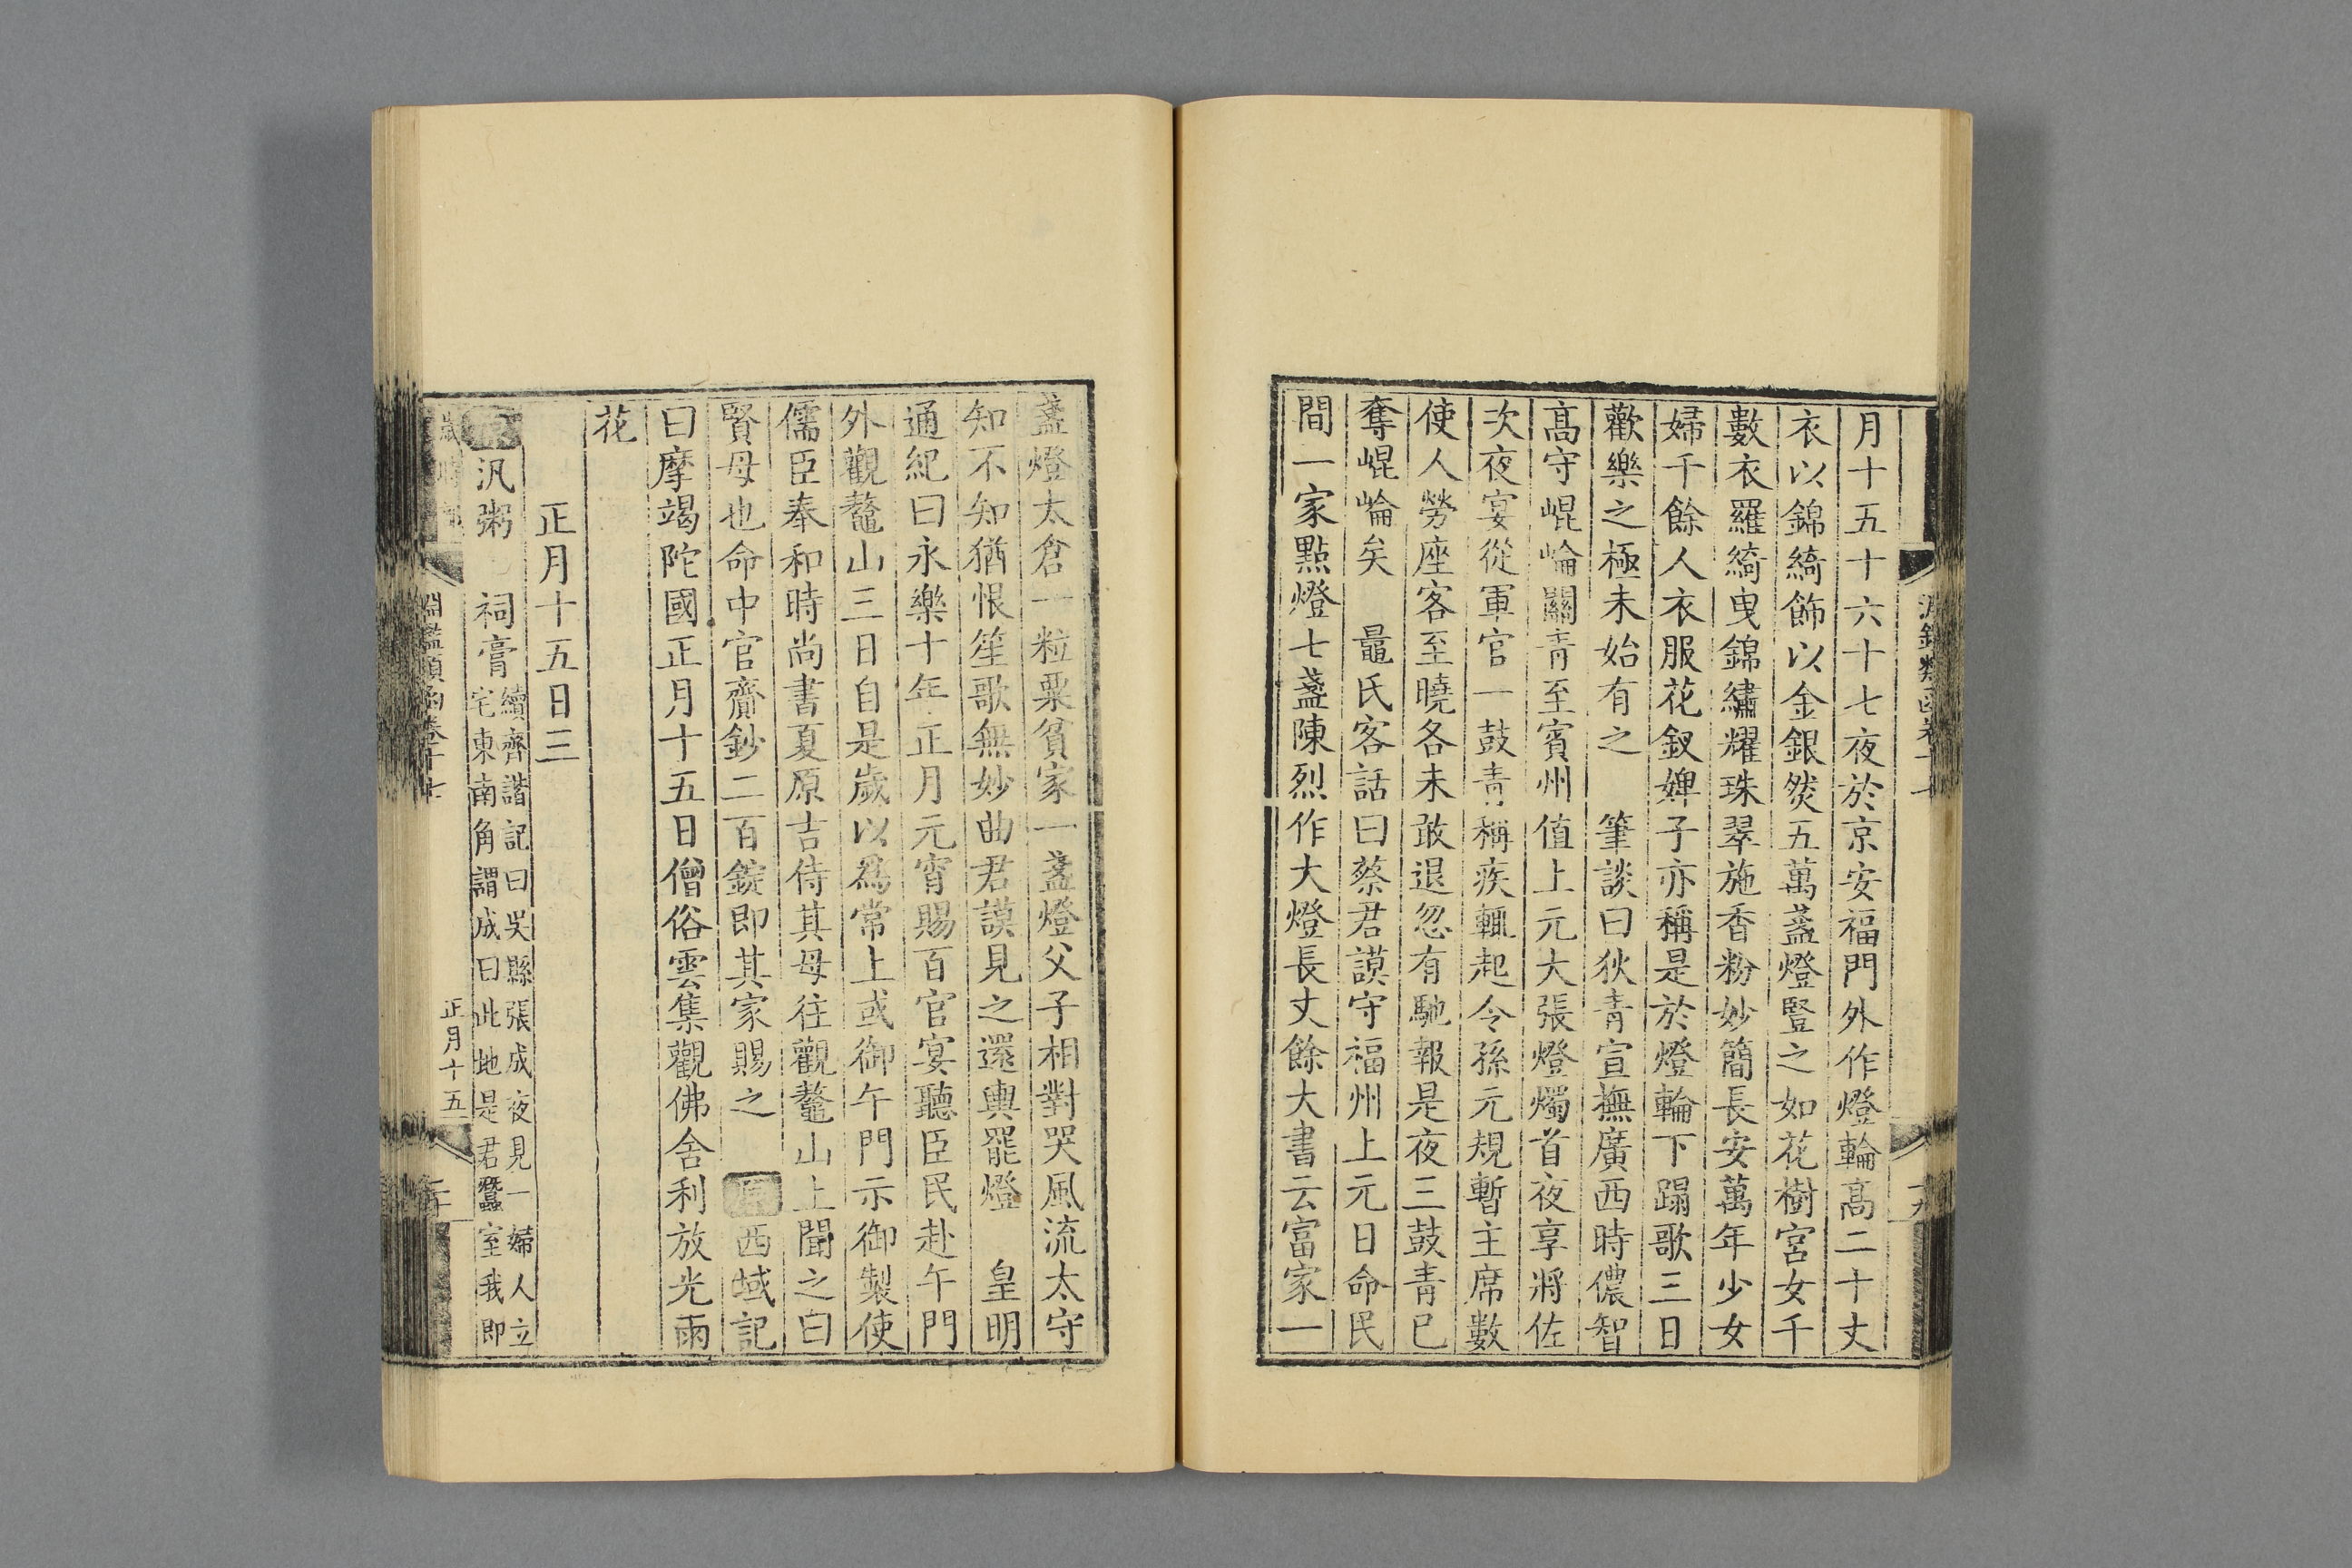 月十五十六十七夜於京安福門外作燈輪高二十丈
衣以錦綺飾以金銀燃五萬盞燈豎之如花樹宮女千
數衣羅綺曳錦繡耀珠翠施香粉妙簡長安萬年少女
婦千餘人衣服花釵婢子亦稱是於燈輪下蹋歌三日
歡樂之極未始有之　筆談曰狄青宣撫廣西時儂智
高守崐崘關青至賓州值上元大張燈燭首夜享將佐
次夜宴從軍官一鼓青稱疾輒起令孫元規暫主席數
使人勞座客至曉各未敢退忽有馳報是夜三鼓青已
奪崐崘矣　鼂氏客話曰蔡君謨守福州上元日命民
間一家點燈七盞陳烈作大燈長丈餘大書云富家一
盞燈太倉一粒粟貧家一盞燈父子相對哭風流太守
知不知猶恨笙歌無妙曲君謨見之還輿罷燈　皇明
通紀曰永樂十年正月元宵賜百官宴聽臣民赴午門
外觀鼇山三日自是歲以爲常上或御午門示御製使
儒臣奉和時尚書夏原吉侍其母往觀鼇山上聞之曰
賢母也命中官齎鈔二百錠即其家賜之　原西域記
曰摩竭陀國正月十五日僧俗雲集觀佛舍利放光雨
花
正月十五日三
汎粥　祠膏
續齊諧記曰吳縣張成夜見一婦人立
宅東南角謂成曰此地是君蠶室我即
淵鑑類函卷十七
正月十五
二十